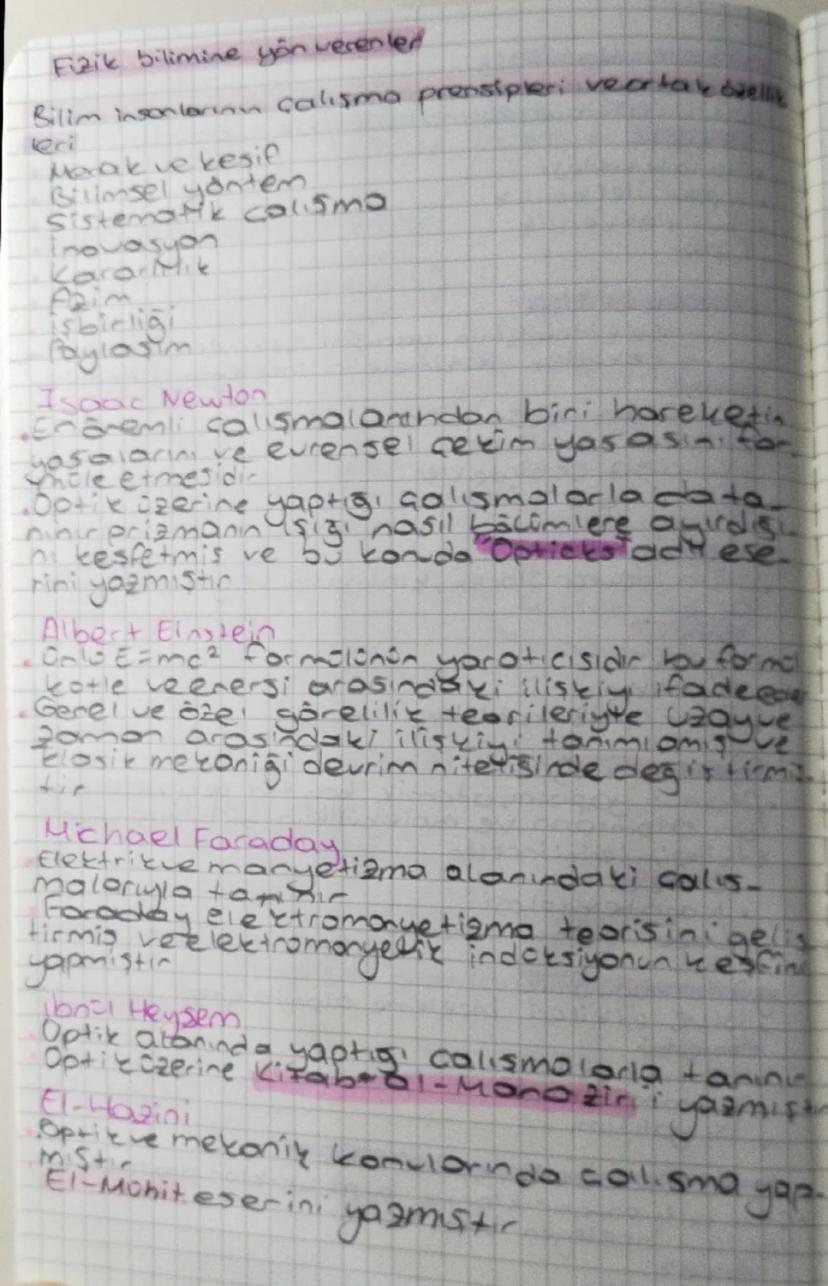 Fizik bilimine yön verenler
Bilim insanlarının çalışma prensipleri ve ortak özellik
leri
Merak ve keşif
Bilimsel yöntem
Sistematik çalışma
inovasyon
Kararlılık
Azim
işbirliği
Paylaşım
Isaac Newton
.En önemli çalışmalarından biri hareketin
yasalarını ve evrensel çekim yasasını for
müle etmesidir
.Optik üzerine yaptığı çalışmalarla da ta-
nınır prizmanın ışığı nasıl bölümlere ayırdığı
nı keşfetmiş ve bu konuda "Opticks" adlı ese-
rini yazmıştır
Albert Einstein
. Ünlü E=mc² formülünün yaratıcısıdır bu formül
kütle ve enerji arasındaki ilişkiyi ifade eder
. Genel ve özel görelilik teorileriyle uzay ve
zaman arasındaki ilişkiyi tanımlamış ve
klasik mekaniği devrim niteliğinde değiştirmiş
tir
Michael Faraday
Elektrik ve manyetizma alanındaki çalış-
malarıyla tanınır
Faraday elektromanyetizma teorisini geliş
tirmiş ve elektromanyetik indüksiyonun keşfini
yapmıştır
ibnül Heysem
Optik alanında yaptığı çalışmalarla tanınır
Optik üzerine Kitab-al-Manazir i yazmıştır
El-Hazini
.Optik ve mekanik konularında çalışma yap-
mıştır
El-Mohit eserini yazmıştır